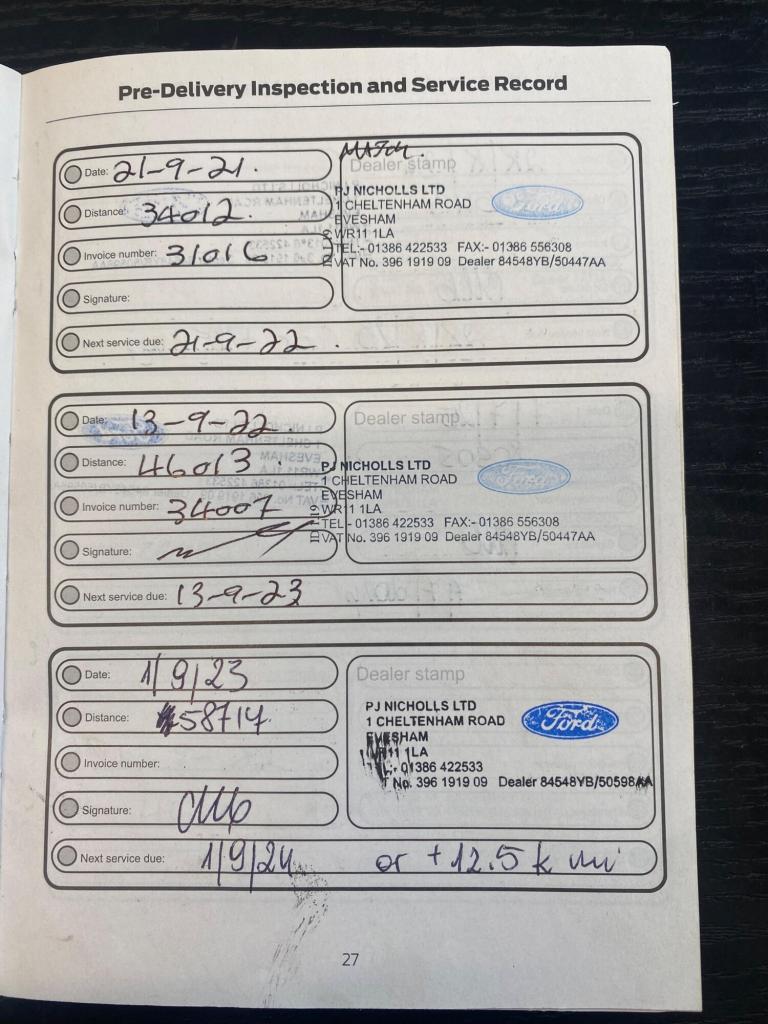 Pre-Delivery Inspection and Service Record
Date: 21-9-21.
Distance: 34012.
Invoice number: 31016
Signature:
Next service due: 21-9-22.
Dealer stamp
PJ NICHOLLS LTD
1 CHELTENHAM ROAD
EVESHAM
WR11 1LA
TEL:- 01386 422533 FAX:- 01386 556308
VAT No. 396 1919 09 Dealer 84548YB/50447AA
Ford
Date: 13-9-22.
Distance: 46013
Invoice number: 34007
Signature:
Next service due: 13-9-23
Dealer stamp
PJ NICHOLLS LTD
1 CHELTENHAM ROAD
EVESHAM
WR11 1LA
TEL:- 01386 422533 FAX:- 01386 556308
VAT No. 396 1919 09 Dealer 84548YB/50447AA
Ford
Date: 1/9/23
Distance: 58714
Invoice number:
Signature:
Next service due: 1/9/24 or +12.5 k mi
Dealer stamp
PJ NICHOLLS LTD
1 CHELTENHAM ROAD
EVESHAM
WR11 1LA
01386 422533
No. 396 1919 09 Dealer 84548YB/50598AA
Ford
27